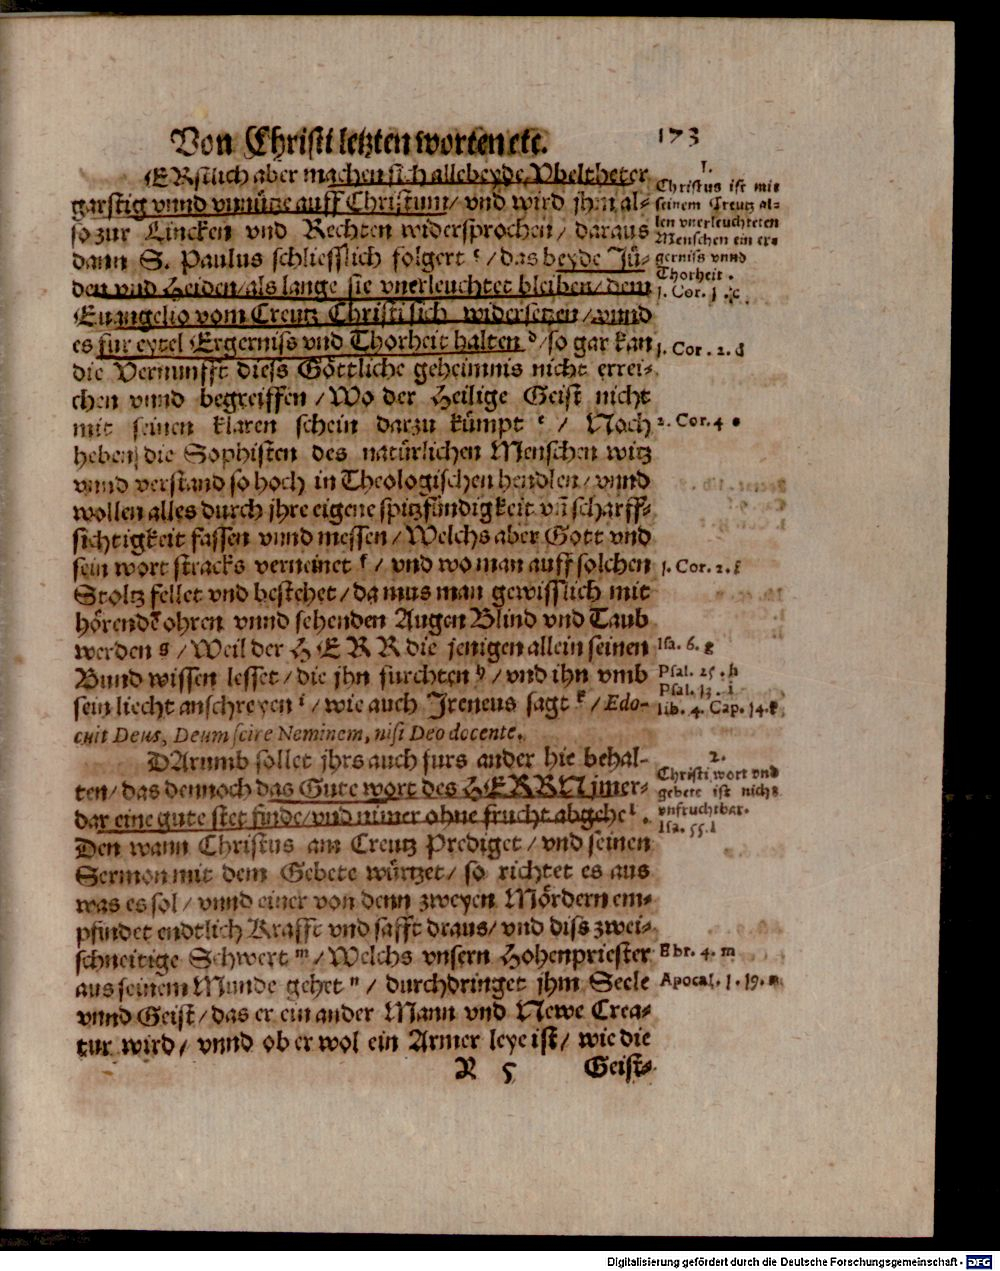 Von Christi letzten worten etc. 173
ERstlich aber machen sich alle beyde Vbeltheter
garstig vnnd vnnütze auff Christum / vnd wird jhm al⸗
so zur Lincken vnd Rechten widersprochen / daraus
dann S. Paulus schliesslich folgert c / das beyde Jü⸗
den vnd Heiden / als lange sie vnerleuchtet bleiben / dem
Euangelio vom Creutz Christi sich widersetzen / vnnd
es für eytel Ergerniss vnd Thorheit halten d / so gar kan
die Vernunfft diess Göttliche geheimnis nicht errei⸗
chen vnnd begreiffen / Wo der Heilige Geist nicht
mit seinen klaren schein darzu kümpt e / Noch
heben die Sophisten des natürlichen Menschen witz
vnnd verstand so hoch in Theologischen hendlen / vnnd
wollen alles durch jhre eigene spitzfündigkeit vñ scharff⸗
sichtigkeit fassen vnnd messen / Welchs aber Gott vnd
sein wort stracks verneinet f / vnd wo man auff solchen
Stoltz fellet vnd bestehet / da mus man gewisslich mit
hörendẽ ohren vnnd sehenden Augen Blind vnd Taub
werden g / Weil der HERR die jenigen allein seinen
Bund wissen lesset / die jhn fürchten h / vnd ihn vmb
sein liecht anschreyen i / wie auch Jreneus sagt k / Edo-
cuit Deus, Deum scire Neminem, nisi Deo docente.
DArumb sollet jhrs auch fürs ander hie behal⸗
ten / das dennoch das Gute wort des HERRN jmer⸗
dar eine gute stet finde / vnd nimer ohne frucht abgehe l.
Den wann Christus am Creutz Prediget / vnd seinen
Sermon mit dem Gebete würtzet / so richtet es aus
was es sol / vnnd einer von denn zweyen Mördern em⸗
pfindet endtlich Krafft vnd safft draus / vnd diss zwei⸗
schneitige Schwert m / Welchs vnsern Hohenpriester
aus seinem Munde gehet n / durchdringet jhm Seele
vnnd Geist / das er ein ander Mann vnd Newe Crea⸗
tur wird / vnnd ob er wol ein Armer leye ist / wie die
R 5 Geist⸗
1.
Christus ist mit
seinem Creutz al⸗
len vnerleuchteten
Menschen ein er⸗
gerniss vnnd
Thorheit.
1. Cor. 1. c
1. Cor. 2. d
2. Cor. 4 e
1. Cor. 2. f
Isa. 6. g
Psal. 25. h
Psal. 13. i
lib. 4. Cap. 14. k
2.
Christi wort vnd
gebete ist nicht
vnfruchtbar.
Isa. 55. l
Ebr. 4. m
Apocal. 1. 19. n
Digitalisierung gefördert durch die Deutsche Forschungsgemeinschaft - DFG